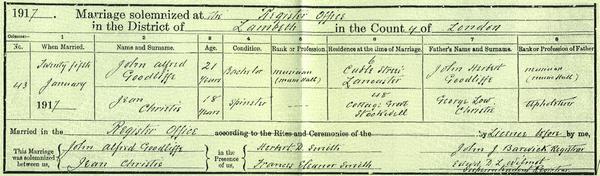 1917. Marriage solemnized at the Register Office
in the District of Lambeth in the County of London
Columns:— 1 2 3 4 5 6 7 8
No. When Married. Name and Surname. Age. Condition. Rank or Profession. Residence at the time of Marriage. Father's Name and Surname. Rank or Profession of Father.
43 Twenty fifth January 1917 John Alfred Goodliffe 21 Years Bachelor musician (music Hall) 6 Cable Street Lancaster John Herbert Goodliffe musician (music Hall)
Jean Christie 18 Years Spinster 48 Cottage Grove Stockwell George Low Christie Upholsterer
Married in the Register Office according to the Rites and Ceremonies of the by Licence before by me,
This Marriage was solemnized between us, John Alfred Goodliffe Jean Christie in the Presence of us, Herbert D. Smith Francis Eleanor Smith John J. Barwick Registrar
Superintendent Registrar